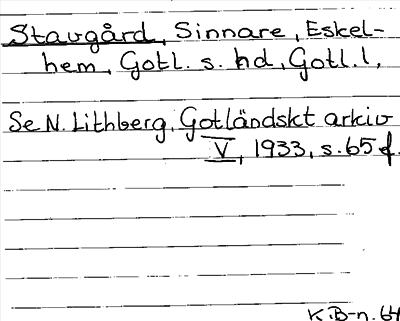 Stavgård, Sinnare, Eskel-
hem, Gotl. s. hd, Gotl. l,
Se N. Lithberg, Gotländskt arkiv
V, 1933, s. 65 f.
K.B-n. 64